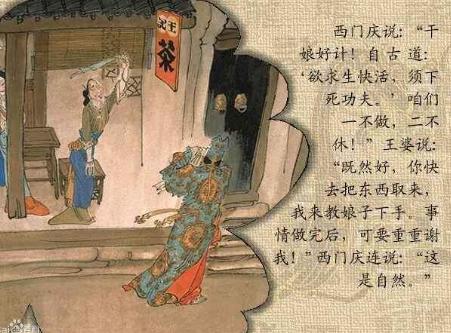 王记
茶
西门庆说：“干
娘好计！自古道：
‘欲求生快活，须下
死功夫。’咱们
一不做，二不
休！”王婆说：
“既然好，你快
去把东西取来，
我来教娘子下手。事
情做完后，可要重重谢
我！”西门庆连说：“这
是自然。”